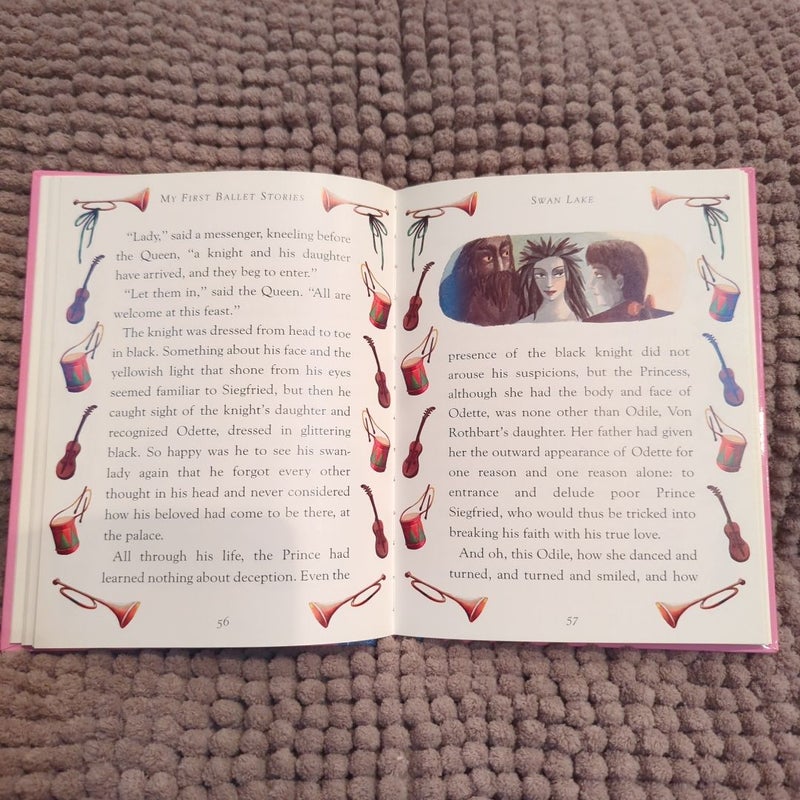 MY FIRST BALLET STORIES
“Lady,” said a messenger, kneeling before
the Queen, “a knight and his daughter
have arrived, and they beg to enter.”
“Let them in,” said the Queen. “All are
welcome at this feast.”
The knight was dressed from head to toe
in black. Something about his face and the
yellowish light that shone from his eyes
seemed familiar to Siegfried, but then he
caught sight of the knight’s daughter and
recognized Odette, dressed in glittering
black. So happy was he to see his swan-
lady again that he forgot every other
thought in his head and never considered
how his beloved had come to be there, at
the palace.
All through his life, the Prince had
learned nothing about deception. Even the
56
SWAN LAKE
presence of the black knight did not
arouse his suspicions, but the Princess,
although she had the body and face of
Odette, was none other than Odile, Von
Rothbart’s daughter. Her father had given
her the outward appearance of Odette for
one reason and one reason alone: to
entrance and delude poor Prince
Siegfried, who would thus be tricked into
breaking his faith with his true love.
And oh, this Odile, how she danced and
turned, and turned and smiled, and how
57